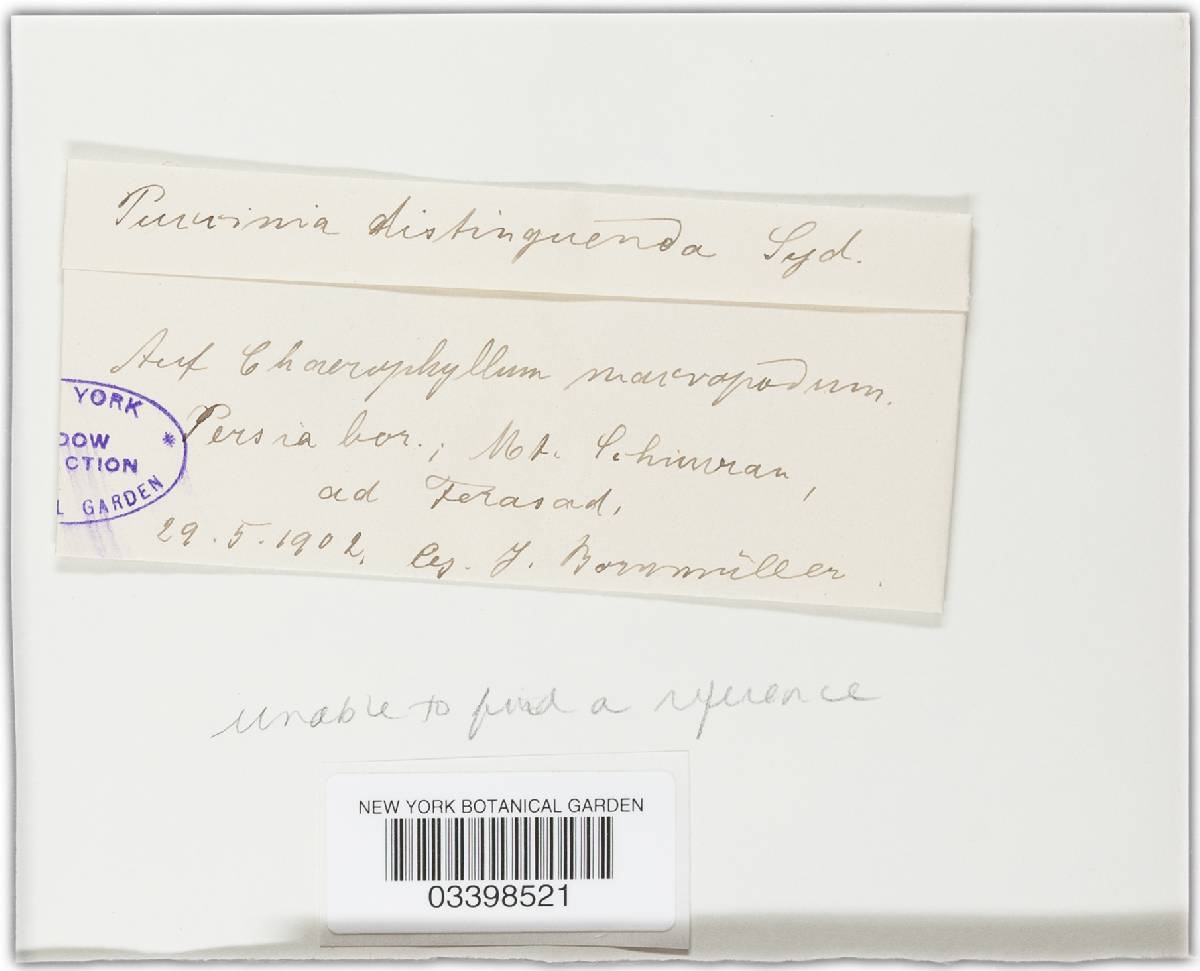 Puccinia distinguenda Syd.
Auf Chaerophyllum macropodum.
Persia bor.; Mt. Schimran,
ad Ferasad,
29.5.1902. leg. J. Bornmüller.
YORK
DOW *
CTION
L GARDEN
unable to find a reference
NEW YORK BOTANICAL GARDEN
03398521